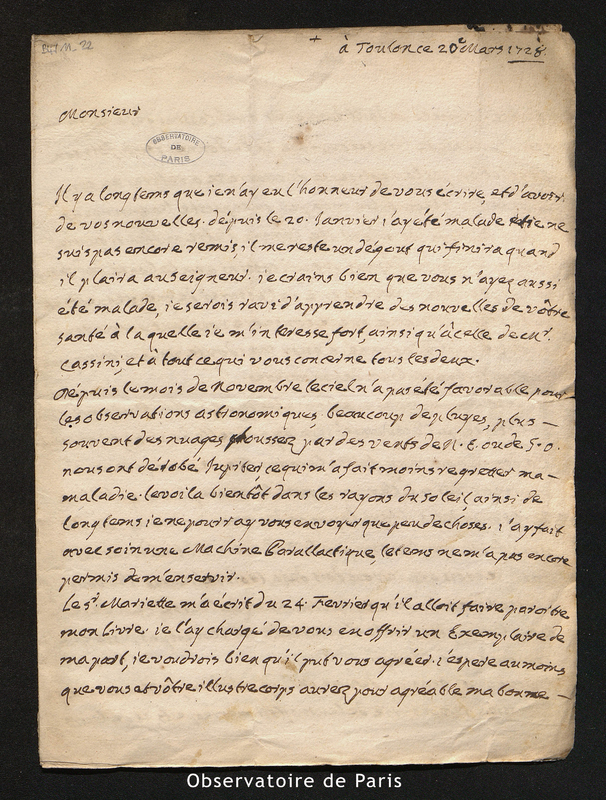 à Toulon ce 20e Mars 1728.
Monsieur
OBSERVATOIRE
DE
PARIS
Il y a longtems que ie n'ay eu l'honneur de vous écrire, et d'avoir
de vos nouvelles. dépuis le 20. Janvier i'ay été malade et ie ne
suis pas encore remis, il me reste un dégout qui finira quand
il plaira au seigneur. ie crains bien que vous n'ayez aussi
été malade, ie serois ravi d'apprendre des nouvelles de vôtre
santé à laquelle ie m'interesse fort, ainsi qu'à celle de Mr.
Cassini, et à tout ce qui vous concerne tous les deux.
Dépuis le mois de Novembre le ciel n'a pas été favorable pour
les observations astronomiques. beaucoup de pluyes, plus
souvent des nuages poussez par des vents de N. E. ou de S. O.
nous ont dérobé Jupiter ce qui m'a fait moins regretter ma
maladie. le voila bientôt dans les rayons du soleil, ainsi de
longtems ie ne pourray vous envoyer que peu de choses. i'ay fait
avec soin une Machine Parallactique, le tems ne m'a pas encore
permis de m'en servir.
Le Sr. Mariette m'a écrit du 24. Fevrier qu'il alloit faire paroître
mon Livre. ie l'ay chargé de vous en offrir un Exemplaire de
ma part, ie voudrois bien qu'il put vous agréer. i'espere au moins
que vous et vôtre illustre corps aurez pour agréable ma bonne
Observatoire de Paris